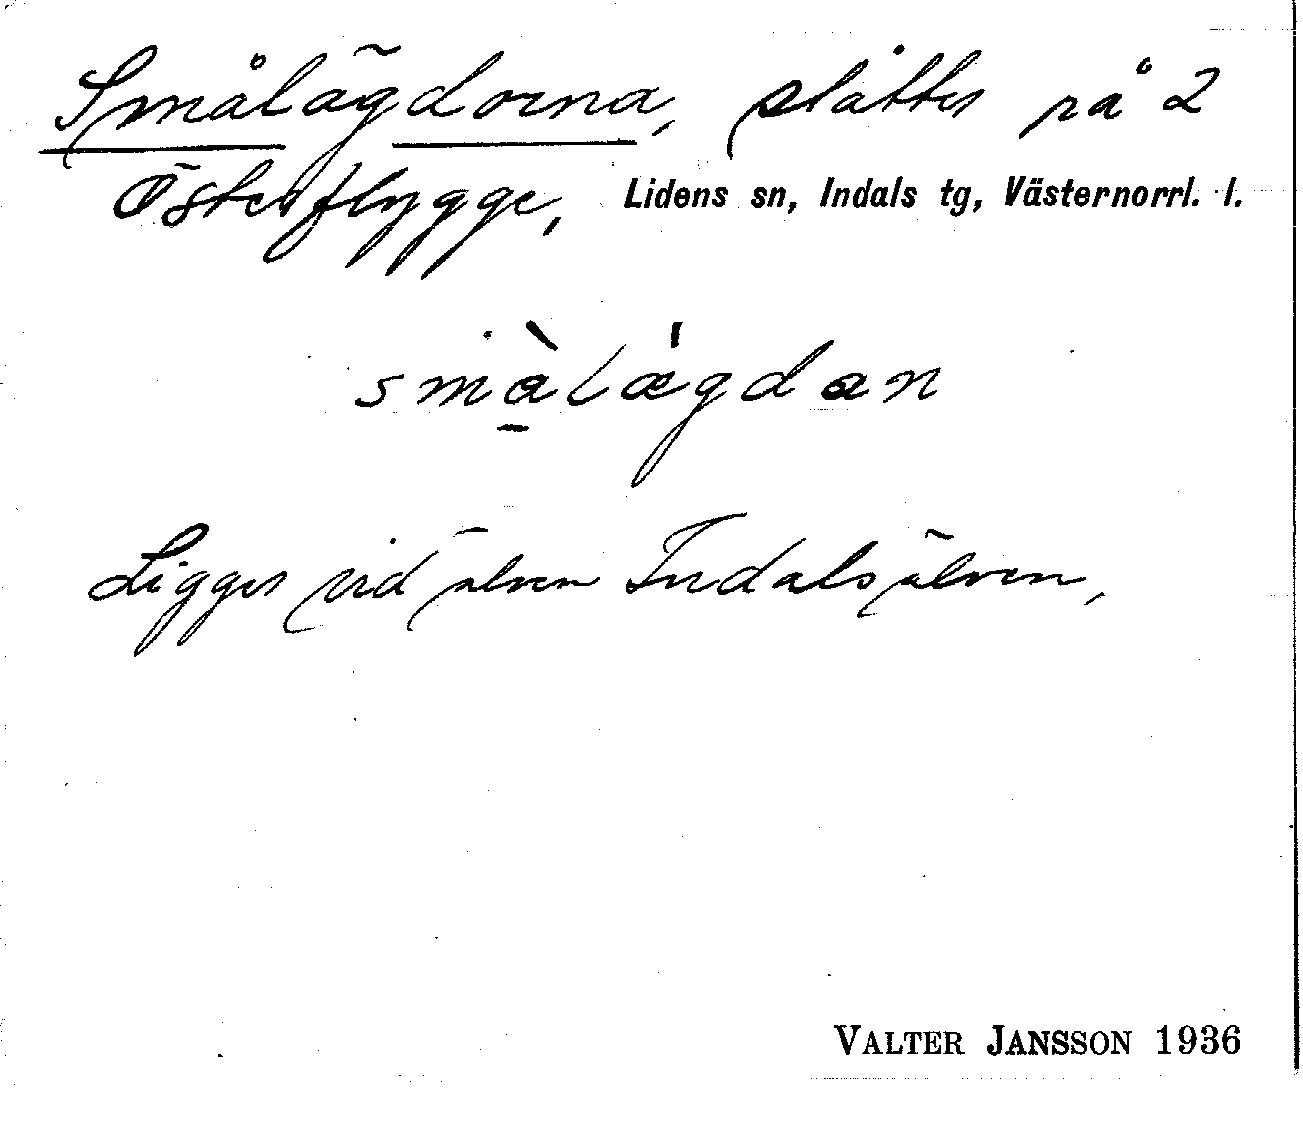 Smålägdorna, slåtter på 2
Österflygge, Lidens sn, Indals tg, Västernorrl. l.
småla̍gdan
Ligger vid älven Indalsälven,
VALTER JANSSON 1936